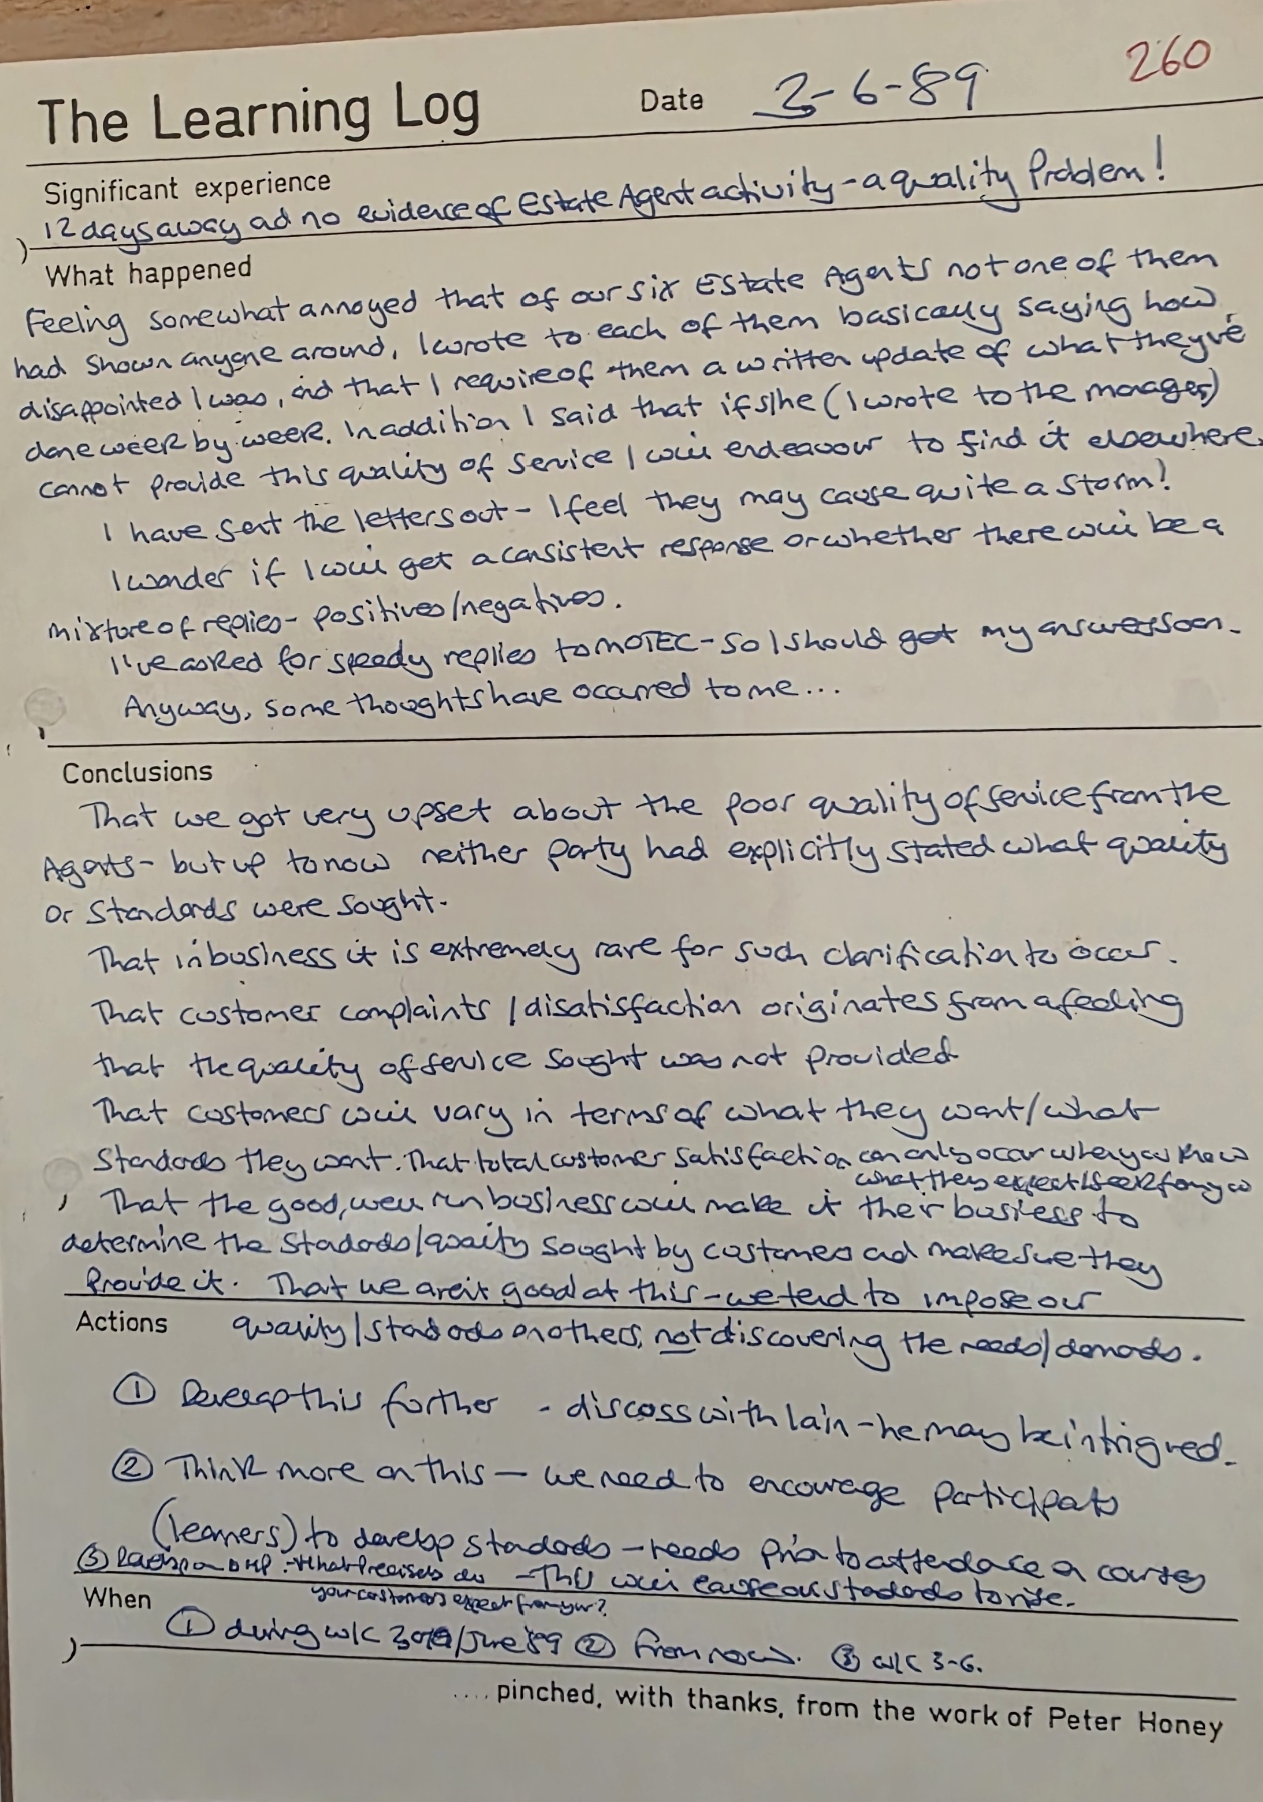 260
The Learning Log Date 3-6-89
Significant experience
12 days away ad no evidence of Estate Agent activity - a quality Problem!
What happened
Feeling somewhat annoyed that of our six Estate Agents not one of them
had shown anyone around, I wrote to each of them basically saying how
disappointed I was, and that I require of them a written update of what they've
done week by week. In addition I said that if s/he (I wrote to the manager)
cannot provide this quality of service I will endeavour to find it elsewhere.
I have sent the letters out - I feel they may cause quite a storm!
I wonder if I will get a consistent response or whether there will be a
mixture of replies - positives/negatives.
I've asked for speedy replies to MOTEC - so I should get my answer soon.
Anyway, some thoughts have occurred to me...
Conclusions
That we got very upset about the poor quality of service from the
Agents - but up to now neither party had explicitly stated what quality
or standards were sought.
That in business it is extremely rare for such clarification to occur.
That customer complaints / disatisfaction originates from a feeling
that the quality of service sought was not provided
That customers will vary in terms of what they want/what
Standards they want. That total customer satisfaction can only occur when you know
what they expect/seek from you
That the good, well run business will make it their business to
determine the standards/quality sought by customers and make sure they
Provide it. That we aren't good at this - we tend to impose our
Actions quality/standards on others, not discovering the needs/demands.
① Develop this further - discuss with Iain - he may be intrigued.
② Think more on this - we need to encourage participants
(learners) to develop standards - needs prior to attendance on courses
③ - What precisely do - This will cause our standards to rise.
your customers expect from you?
When
① during w/c /June '89 ② From now. ③ w/c 3-6.
.... pinched, with thanks, from the work of Peter Honey